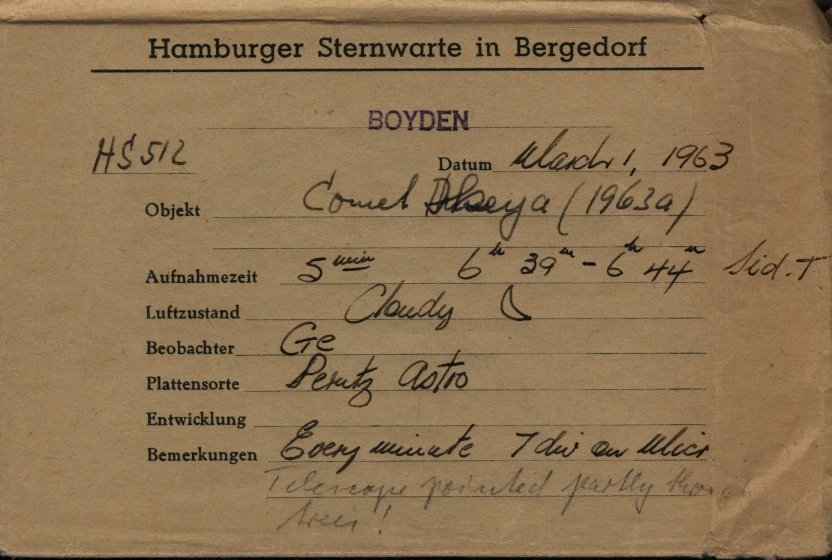 Hamburger Sternwarte in Bergedorf
BOYDEN
HS 512
Datum March 1, 1963
Objekt Comet Ikeya (1963a)
Aufnahmezeit 5 min 6h 39m - 6h 44m Sid. T
Luftzustand Cloudy
Beobachter Ge
Plattensorte Perutz Astro
Entwicklung
Bemerkungen Every minute 7 div on Micr
Telescope pointed partly through
trees!